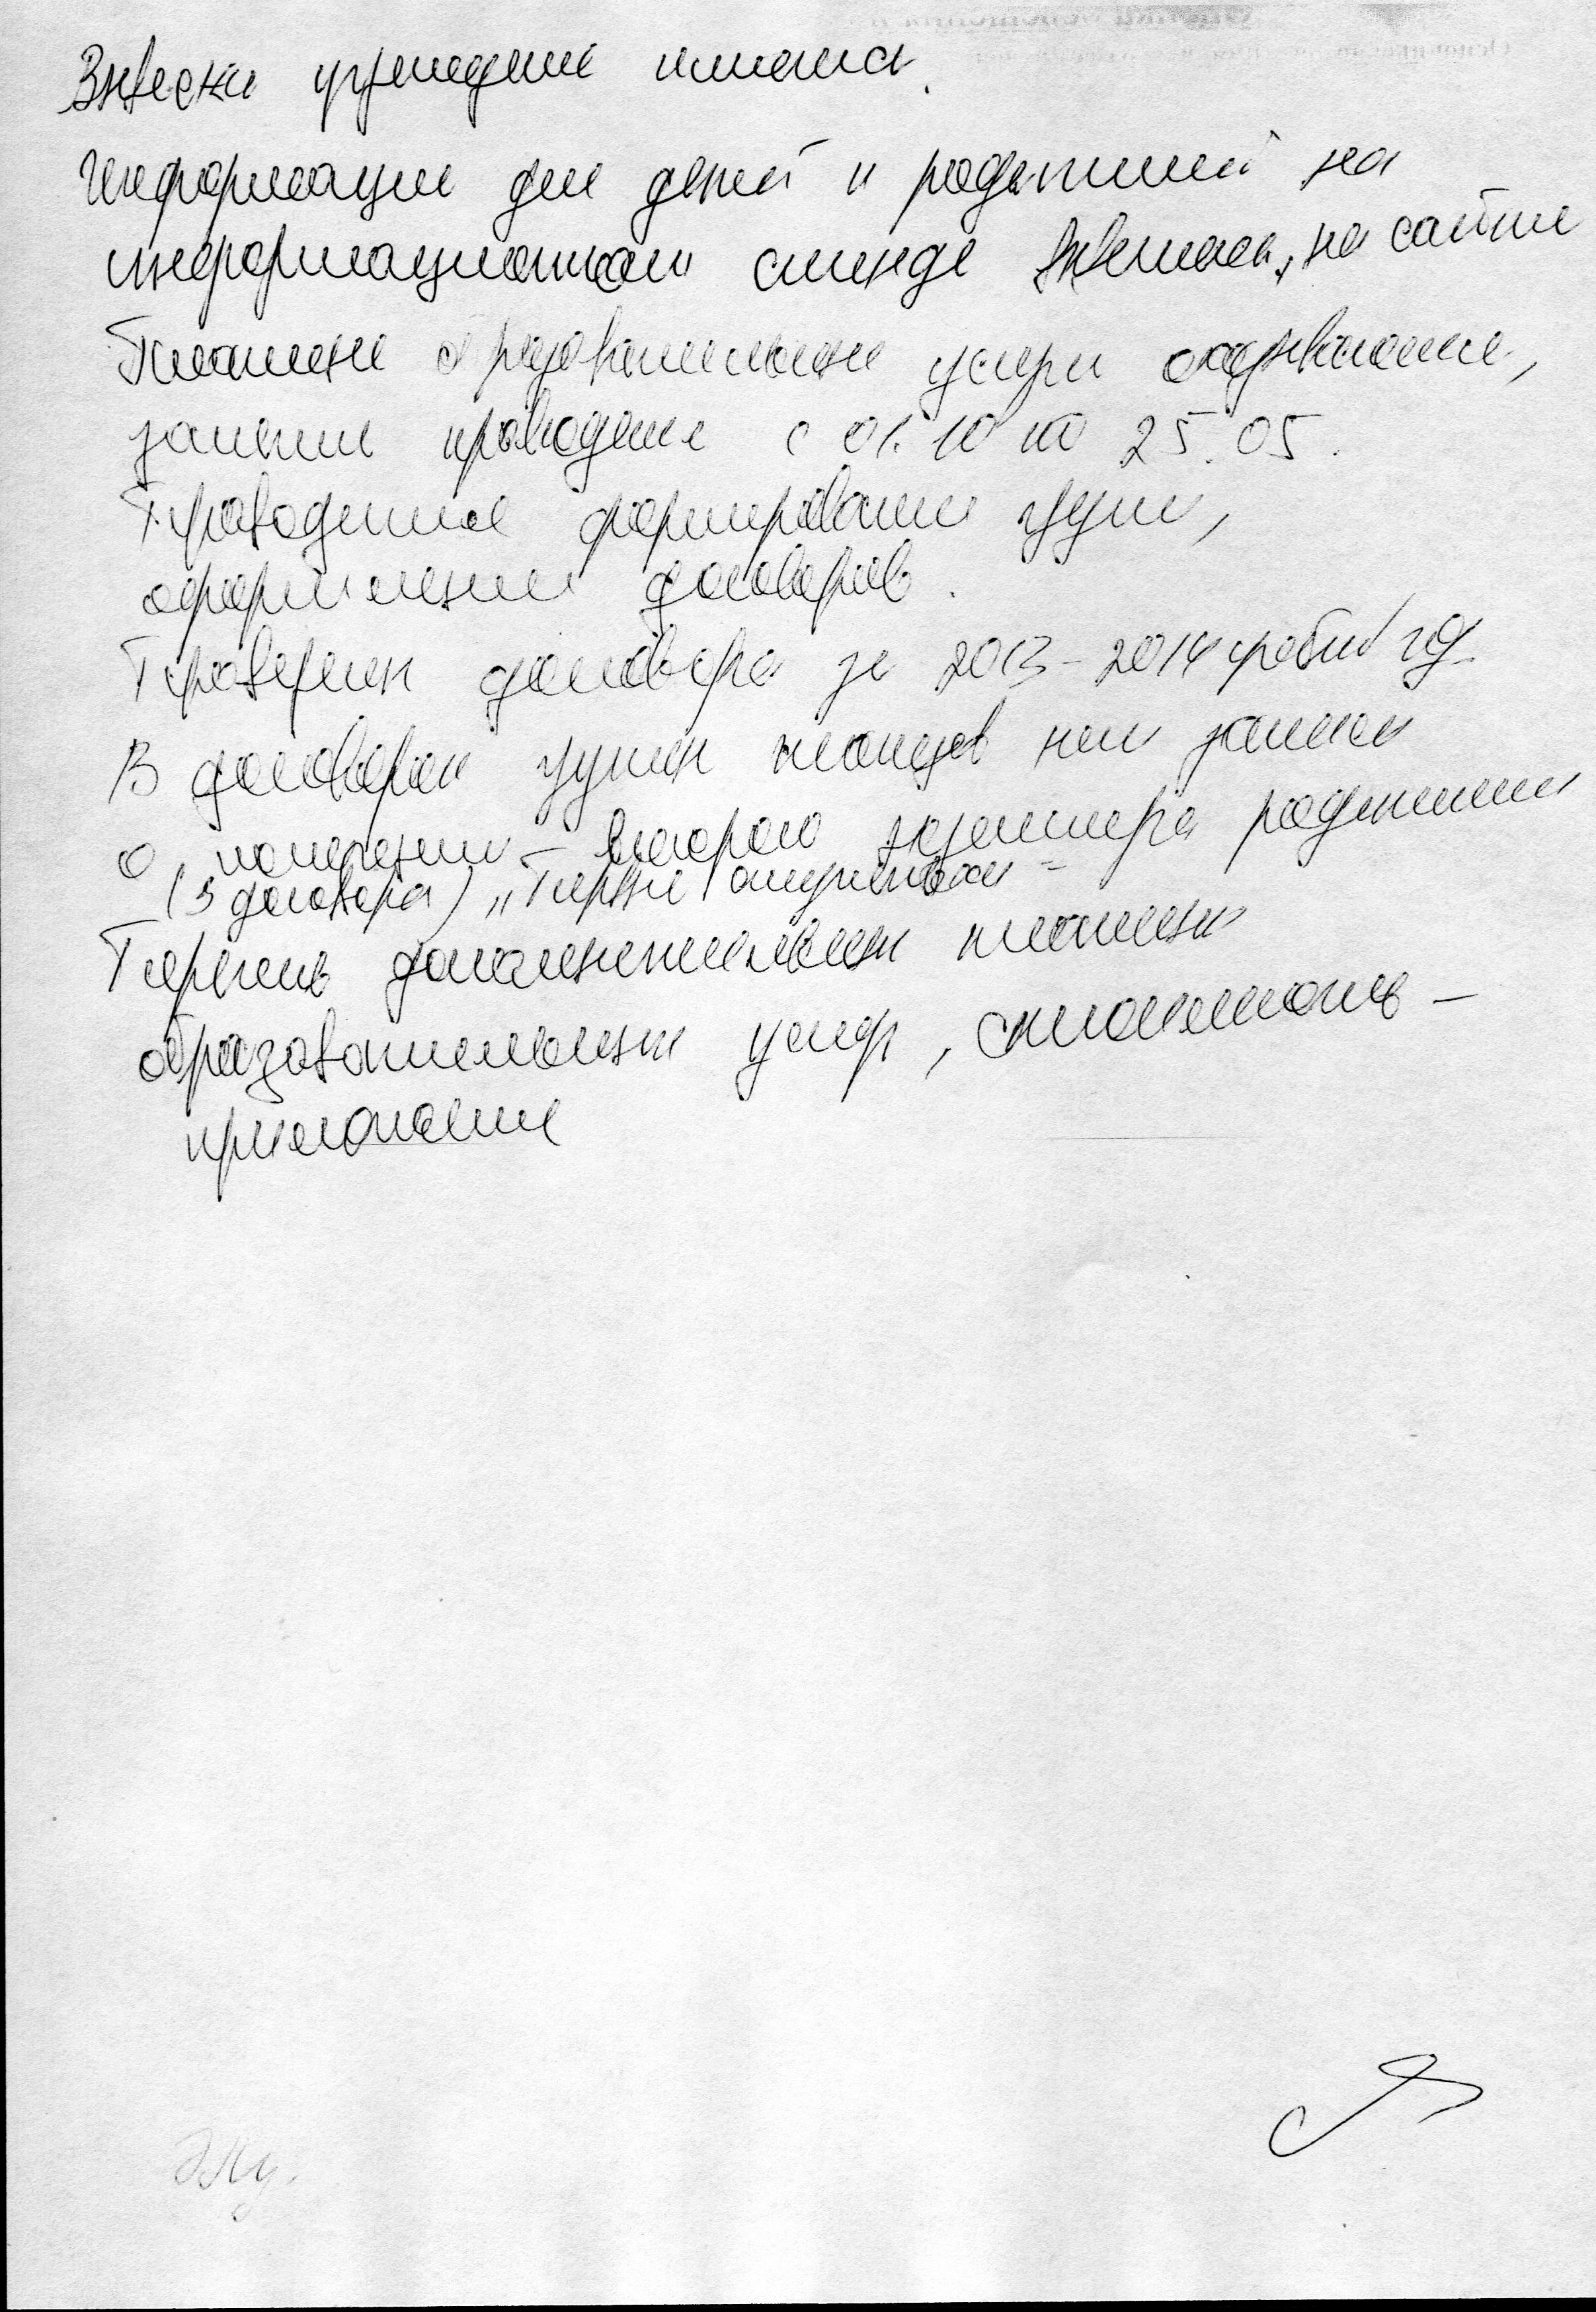 Вывески учреждения имеются.
Информация для детей и родителей на
информационном стенде имеется, на сайте
Платные образовательные услуги оказываются,
занятия проводятся с 01.10 по 25.05.
Проводится формирование групп,
оформление договоров.
Проверены договора за 2013-2014 учебный год.
В договорах группы нет записи
о получении второго экземпляра родителями
(3 договора)
Перечень дополнительных платных
образовательных услуг, стоимость –
приложение